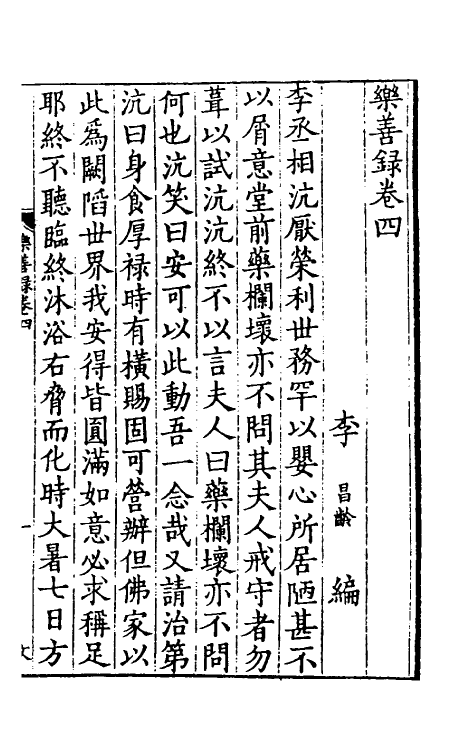 樂善録卷四
李昌齡編
李丞相沆厭榮利世務罕以嬰心所居陋甚不
以屑意堂前藥欄壞亦不問其夫人戒守者勿
葺以試沆沆終不以言夫人曰藥欄壞亦不問
何也沆笑曰安可以此動吾一念哉又請治第
沆曰身食厚禄時有橫賜固可營辦但佛家以
此爲闕䧟世界我安得皆圓滿如意必求稱足
耶終不聽臨終沐浴右脅而化時大暑七日方
樂善録卷四
一